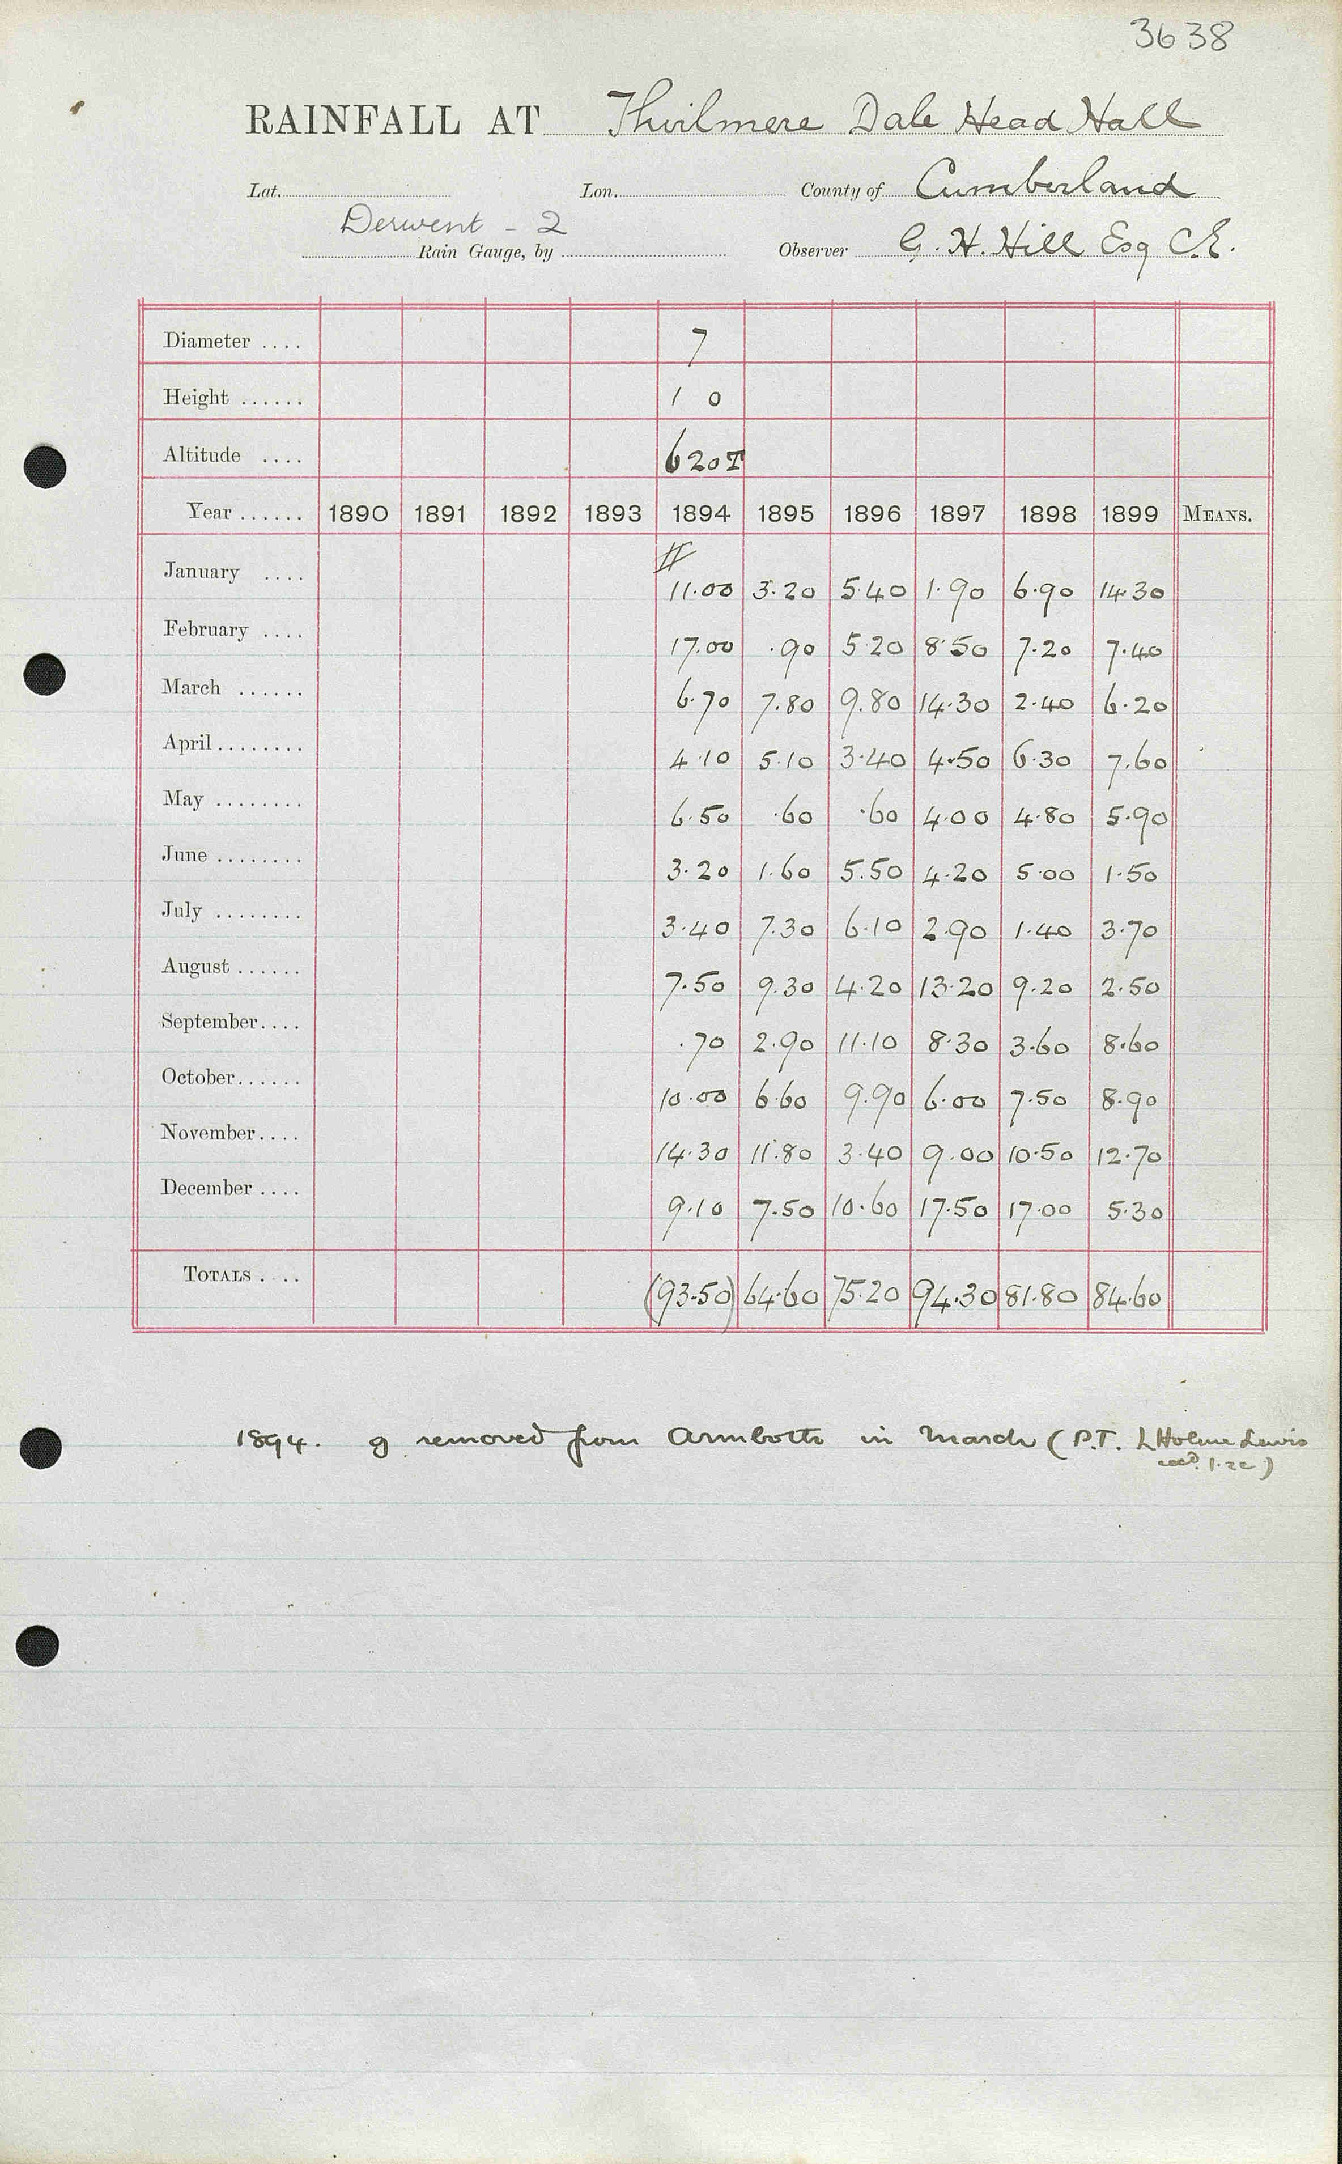 3638
RAINFALL AT Thirlmere Dale Head Hall
Lat. Lon. County of Cumberland
Derwent - 2
Rain Gauge, by Observer G. H. Hill Esq C.E.
Diameter .... 7
Height ...... 1 0
Altitude .... 620T
Year ...... 1890 1891 1892 1893 1894 1895 1896 1897 1898 1899 MEANS.
January .... 11.00 3.20 5.40 1.90 6.90 14.30
February .... 17.00 .90 5.20 8.50 7.20 7.40
March ...... 6.70 7.80 9.80 14.30 2.40 6.20
April ........ 4.10 5.10 3.40 4.50 6.30 7.60
May ........ 6.50 .60 .60 4.00 4.80 5.90
June ........ 3.20 1.60 5.50 4.20 5.00 1.50
July ........ 3.40 7.30 6.10 2.90 1.40 3.70
August ...... 7.50 9.30 4.20 13.20 9.20 2.50
September.... .70 2.90 11.10 8.30 3.60 8.60
October...... 10.00 6.60 9.90 6.00 7.50 8.90
November.... 14.30 11.80 3.40 9.00 10.50 12.70
December .... 9.10 7.50 10.60 17.50 17.00 5.30
TOTALS .... (93.50) 64.60 75.20 94.30 81.80 84.60
1894. g removed from Armboth in March (P.T. L Holme Lewis
1.22)